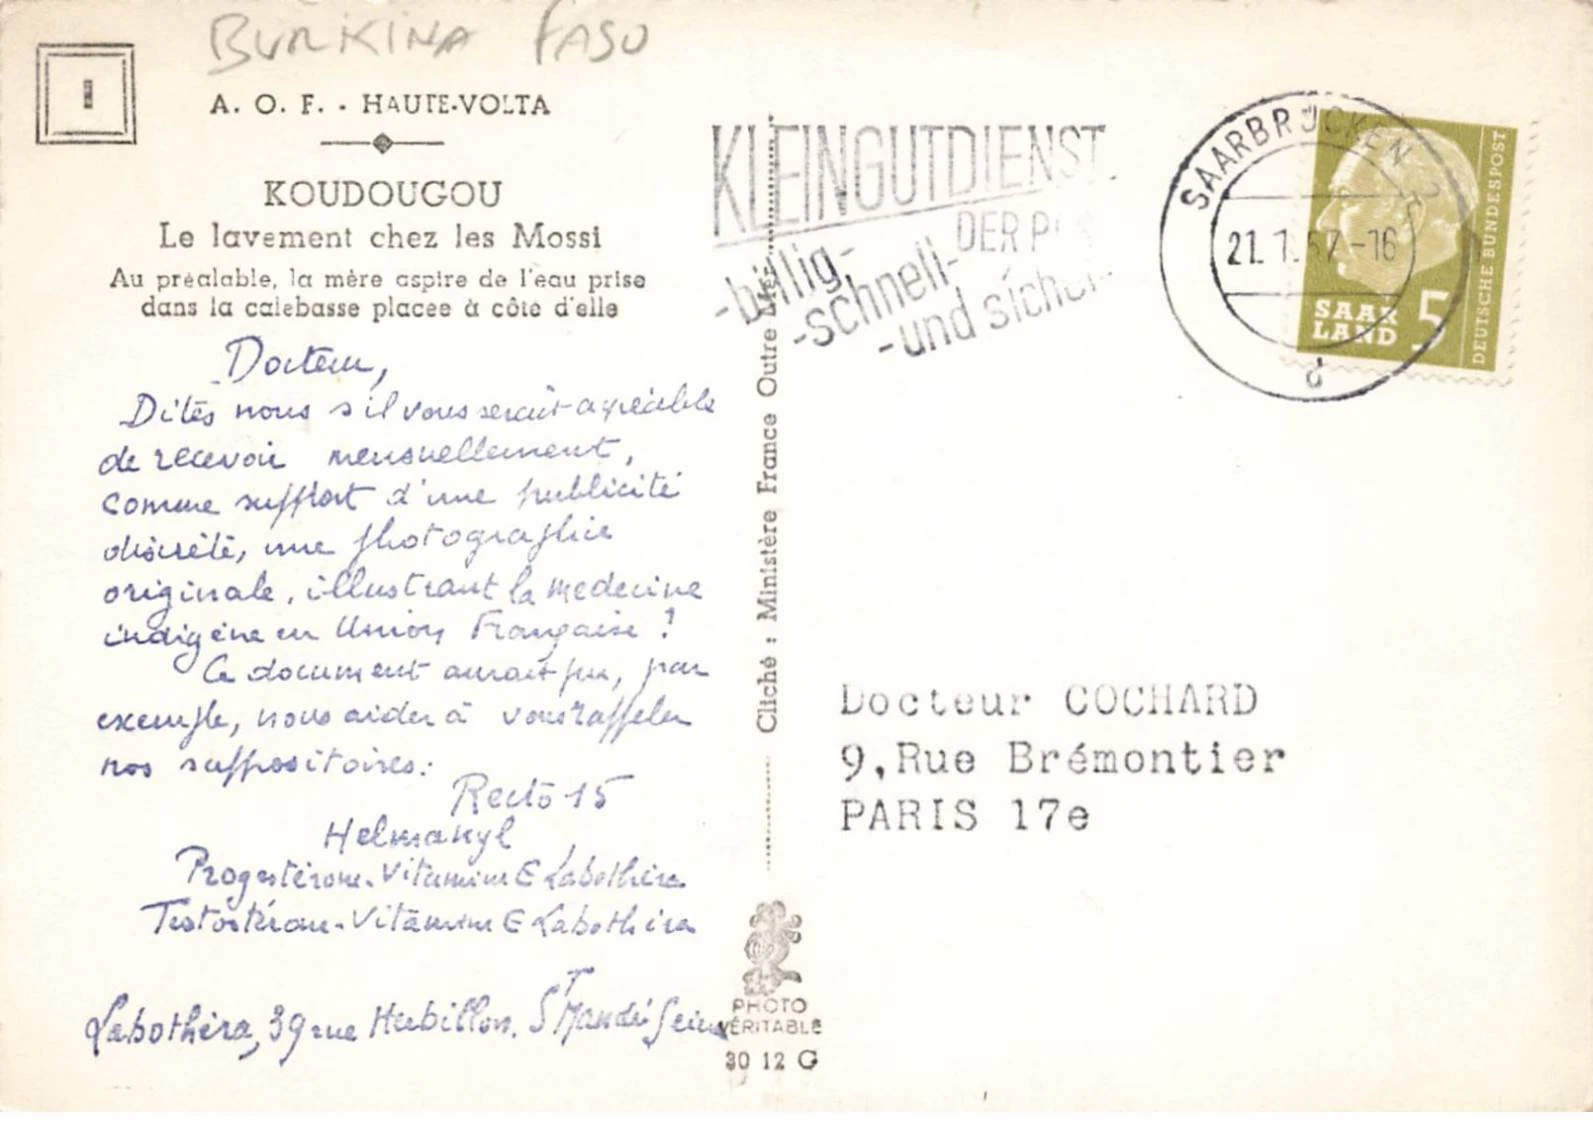 BURKINA FASO
I
A. O. F. - HAUTE-VOLTA
KOUDOUGOU
Le lavement chez les Mossi
Au préalable, la mère aspire de l'eau prise
dans la calebasse placee à côte d'elle
Docteur,
Dites nous s'il vous serait agréable
de recevoir mensuellement,
comme support d'une publicité
discrète, une photographie
originale, illustrant la medecine
indigène en Union Française ?
Ce document aurait pu, par
exemple, nous aider à vous rappeler
nos suppositoires:
Recto 15
Helmanyl
Progestérone-Vitamine E Labothéra
Testostérone-Vitamine E Labothéra
Labothéra, 39 rue Herbillon. St Mandé Seine
Cliché : Ministère France Outre Mer
PHOTO
VÉRITABLE
30 12 G
KLEINGUTDIENST
DER P
-billig,-
-schnell-
-und sicher-
SAARBRÜCKEN 2
21.7.57-16
d
SAAR
LAND 5
DEUTSCHE BUNDESPOST
Docteur COCHARD
9,Rue Brémontier
PARIS 17e